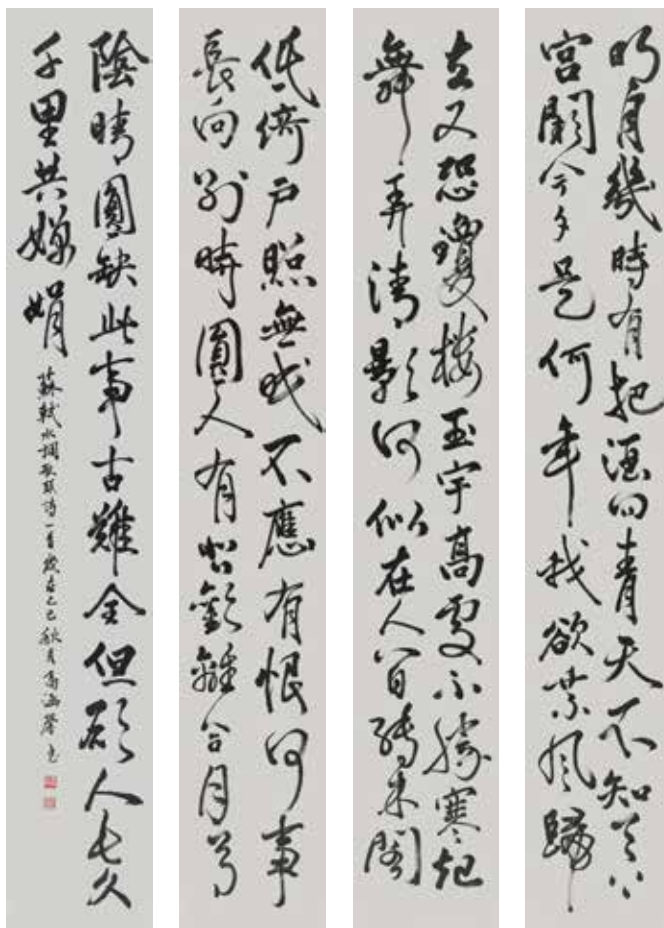 明月幾時有把酒問青天不知天上
宮闕今夕是何年我欲乘風歸
去又恐瓊樓玉宇高處不勝寒起
舞弄清影何似在人間轉朱閣
低綺戶照無眠不應有恨何事
長向別時圓人有悲歡離合月有
陰晴圓缺此事古難全但願人長久
千里共嬋娟
蘇軾水調歌頭詩一首歲在乙巳秋月高書